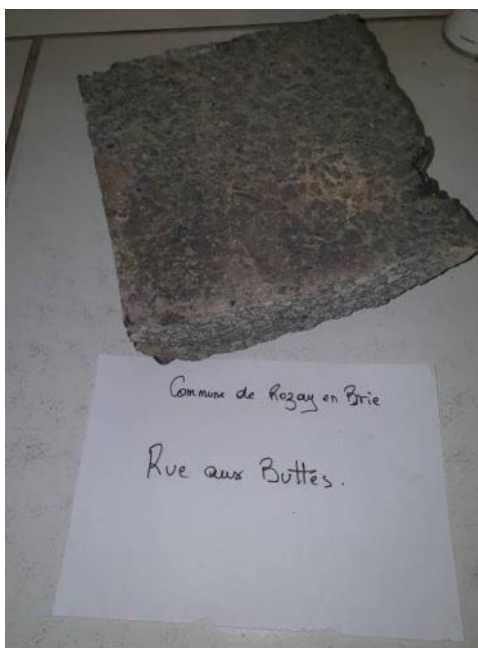 Commune de Rozay en Brie
Rue aux Buttes.